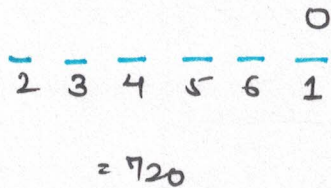 0
2 3 4 5 6 1
= 720